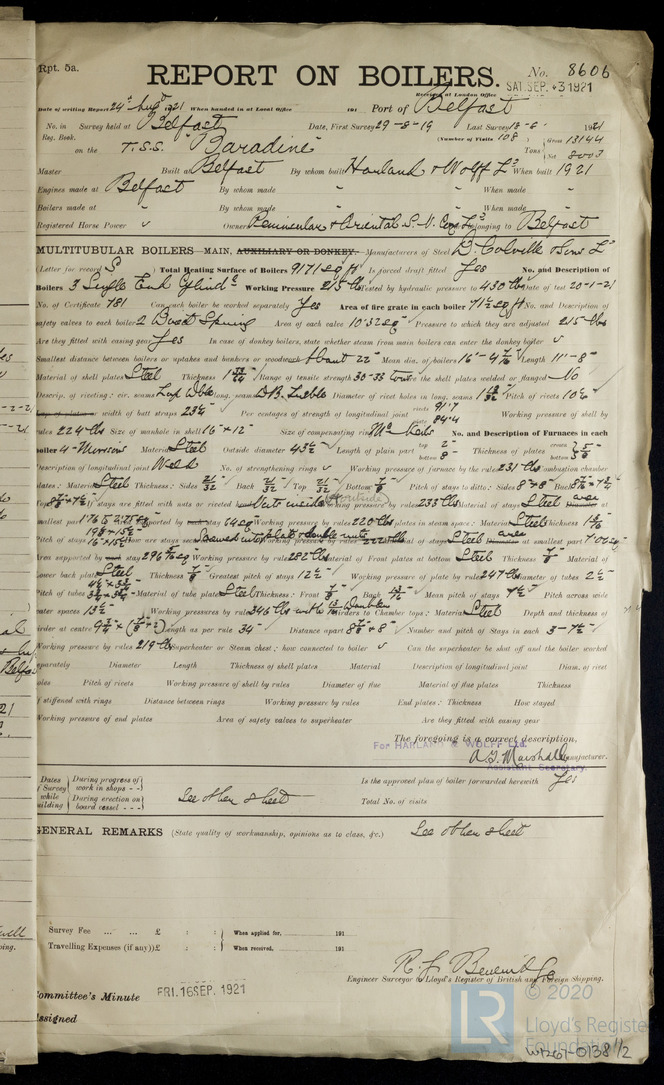 Rpt. 5a.
REPORT ON BOILERS.
No. 8606
Received at London Office SAT. SEP. 3 1921
Date of writing Report 24th Aug 1921 When handed in at Local Office 191 Port of Belfast
No. in Survey held at Belfast Date, First Survey 29-8-19 Last Survey 13-6- 1921
Reg. Book. (Number of Visits 108)
on the T.S.S. "Baradine" Tons Gross 13144
Net 8003
Master Built at Belfast By whom built Harland & Wolff Ld When built 1921
Engines made at Belfast By whom made " When made "
Boilers made at " By whom made " When made "
Registered Horse Power Owners Peninsular & Oriental S. N. Coy Ld Belonging to Belfast
MULTITUBULAR BOILERS MAIN, AUXILIARY OR DONKEY. Manufacturers of Steel D. Colville & Sons Ld
(Letter for record S) Total Heating Surface of Boilers 9171 sq ft Is forced draft fitted Yes No. and Description of
Boilers 3 Single End Cylindl Working Pressure 215 lbs Tested by hydraulic pressure to 430 lbs Date of test 20-1-21
No. of Certificate 781 Can each boiler be worked separately Yes Area of fire grate in each boiler 71½ sq ft No. and Description of
safety valves to each boiler 2 Direct Spring Area of each valve 10.32 sq" Pressure to which they are adjusted 215 lbs
Are they fitted with easing gear Yes In case of donkey boilers, state whether steam from main boilers can enter the donkey boiler
Smallest distance between boilers or uptakes and bunkers or woodwork About 22" Mean dia. of boilers 16'-4 7/16" Length 11'-8"
Material of shell plates Steel Thickness Range of tensile strength 30-33 tons Are the shell plates welded or flanged No
Descrip. of riveting: cir. seams Lap Dble long. seams D.B. Treble Diameter of rivet holes in long. seams Pitch of rivets
Lap of plates or width of butt straps 23¼" Per centages of strength of longitudinal joint rivets 91.7 plate 84.4 Working pressure of shell by
rules 224 lbs Size of manhole in shell 16" x 12" Size of compensating ring McNeils No. and Description of Furnaces in each
boiler 4-Morrison Material Steel Outside diameter 43½" Length of plain part top bottom Thickness of plates crown bottom 5/8"
Description of longitudinal joint Weld No. of strengthening rings Working pressure of furnace by the rules 231 lbs Combustion chamber
plates: Material Steel Thickness: Sides 21/32" Back 21/32" Top 21/32" Bottom 7/8" Pitch of stays to ditto: Sides 8" x 8" Back
Top If stays are fitted with nuts or riveted heads Nuts inside (& outside) Working pressure by rules 233 lbs Material of stays Steel Diameter area at
smallest part Area supported by each stay 64 sq" Working pressure by rules 220 lbs End plates in steam space: Material Steel Thickness
Pitch of stays How are stays secured Screwed into plate & double nuts Working pressure by rules 222 lbs Material of stays Steel Diameter area at smallest part
Area supported by each stay Working pressure by rules 282 lbs Material of Front plates at bottom Steel Thickness 7/8" Material of
Lower back plate Steel Thickness 7/8" Greatest pitch of stays 12½" Working pressure of plate by rules 247 lbs Diameter of tubes 2½"
Pitch of tubes Material of tube plates Steel Thickness: Front 7/8" Back Mean pitch of stays Pitch across wide
water spaces 13½" Working pressures by rules 346 lbs with Doublers Girders to Chamber tops: Material Steel Depth and thickness of
girder at centre Length as per rule 34" Distance apart Number and pitch of Stays in each 3-7½"
Working pressure by rules 219 lbs Superheater or Steam chest; how connected to boiler Can the superheater be shut off and the boiler worked
separately Diameter Length Thickness of shell plates Material Description of longitudinal joint Diam. of rivet
holes Pitch of rivets Working pressure of shell by rules Diameter of flue Material of flue plates Thickness
If stiffened with rings Distance between rings Working pressure by rules End plates: Thickness How stayed
Working pressure of end plates Area of safety valves to superheater Are they fitted with easing gear
The foregoing is a correct description,
For HARLAND & WOLFF Ltd.
A. F. Marshall Manufacturer.
Assistant Secretary.
Dates of Survey while building During progress of work in shops - - See other sheet Is the approved plan of boiler forwarded herewith Yes
During erection on board vessel - - - Total No. of visits
GENERAL REMARKS (State quality of workmanship, opinions as to class, &c.) See other sheet
Survey Fee ... ... £ : : When applied for, 191
Travelling Expenses (if any) £ : : When received, 191
Engineer Surveyor to Lloyd's Register of British and Foreign Shipping.
Committee's Minute FRI. 16 SEP. 1921
Assigned
LR © 2020
Lloyd's Register
Foundation
W1261-0138 1/2